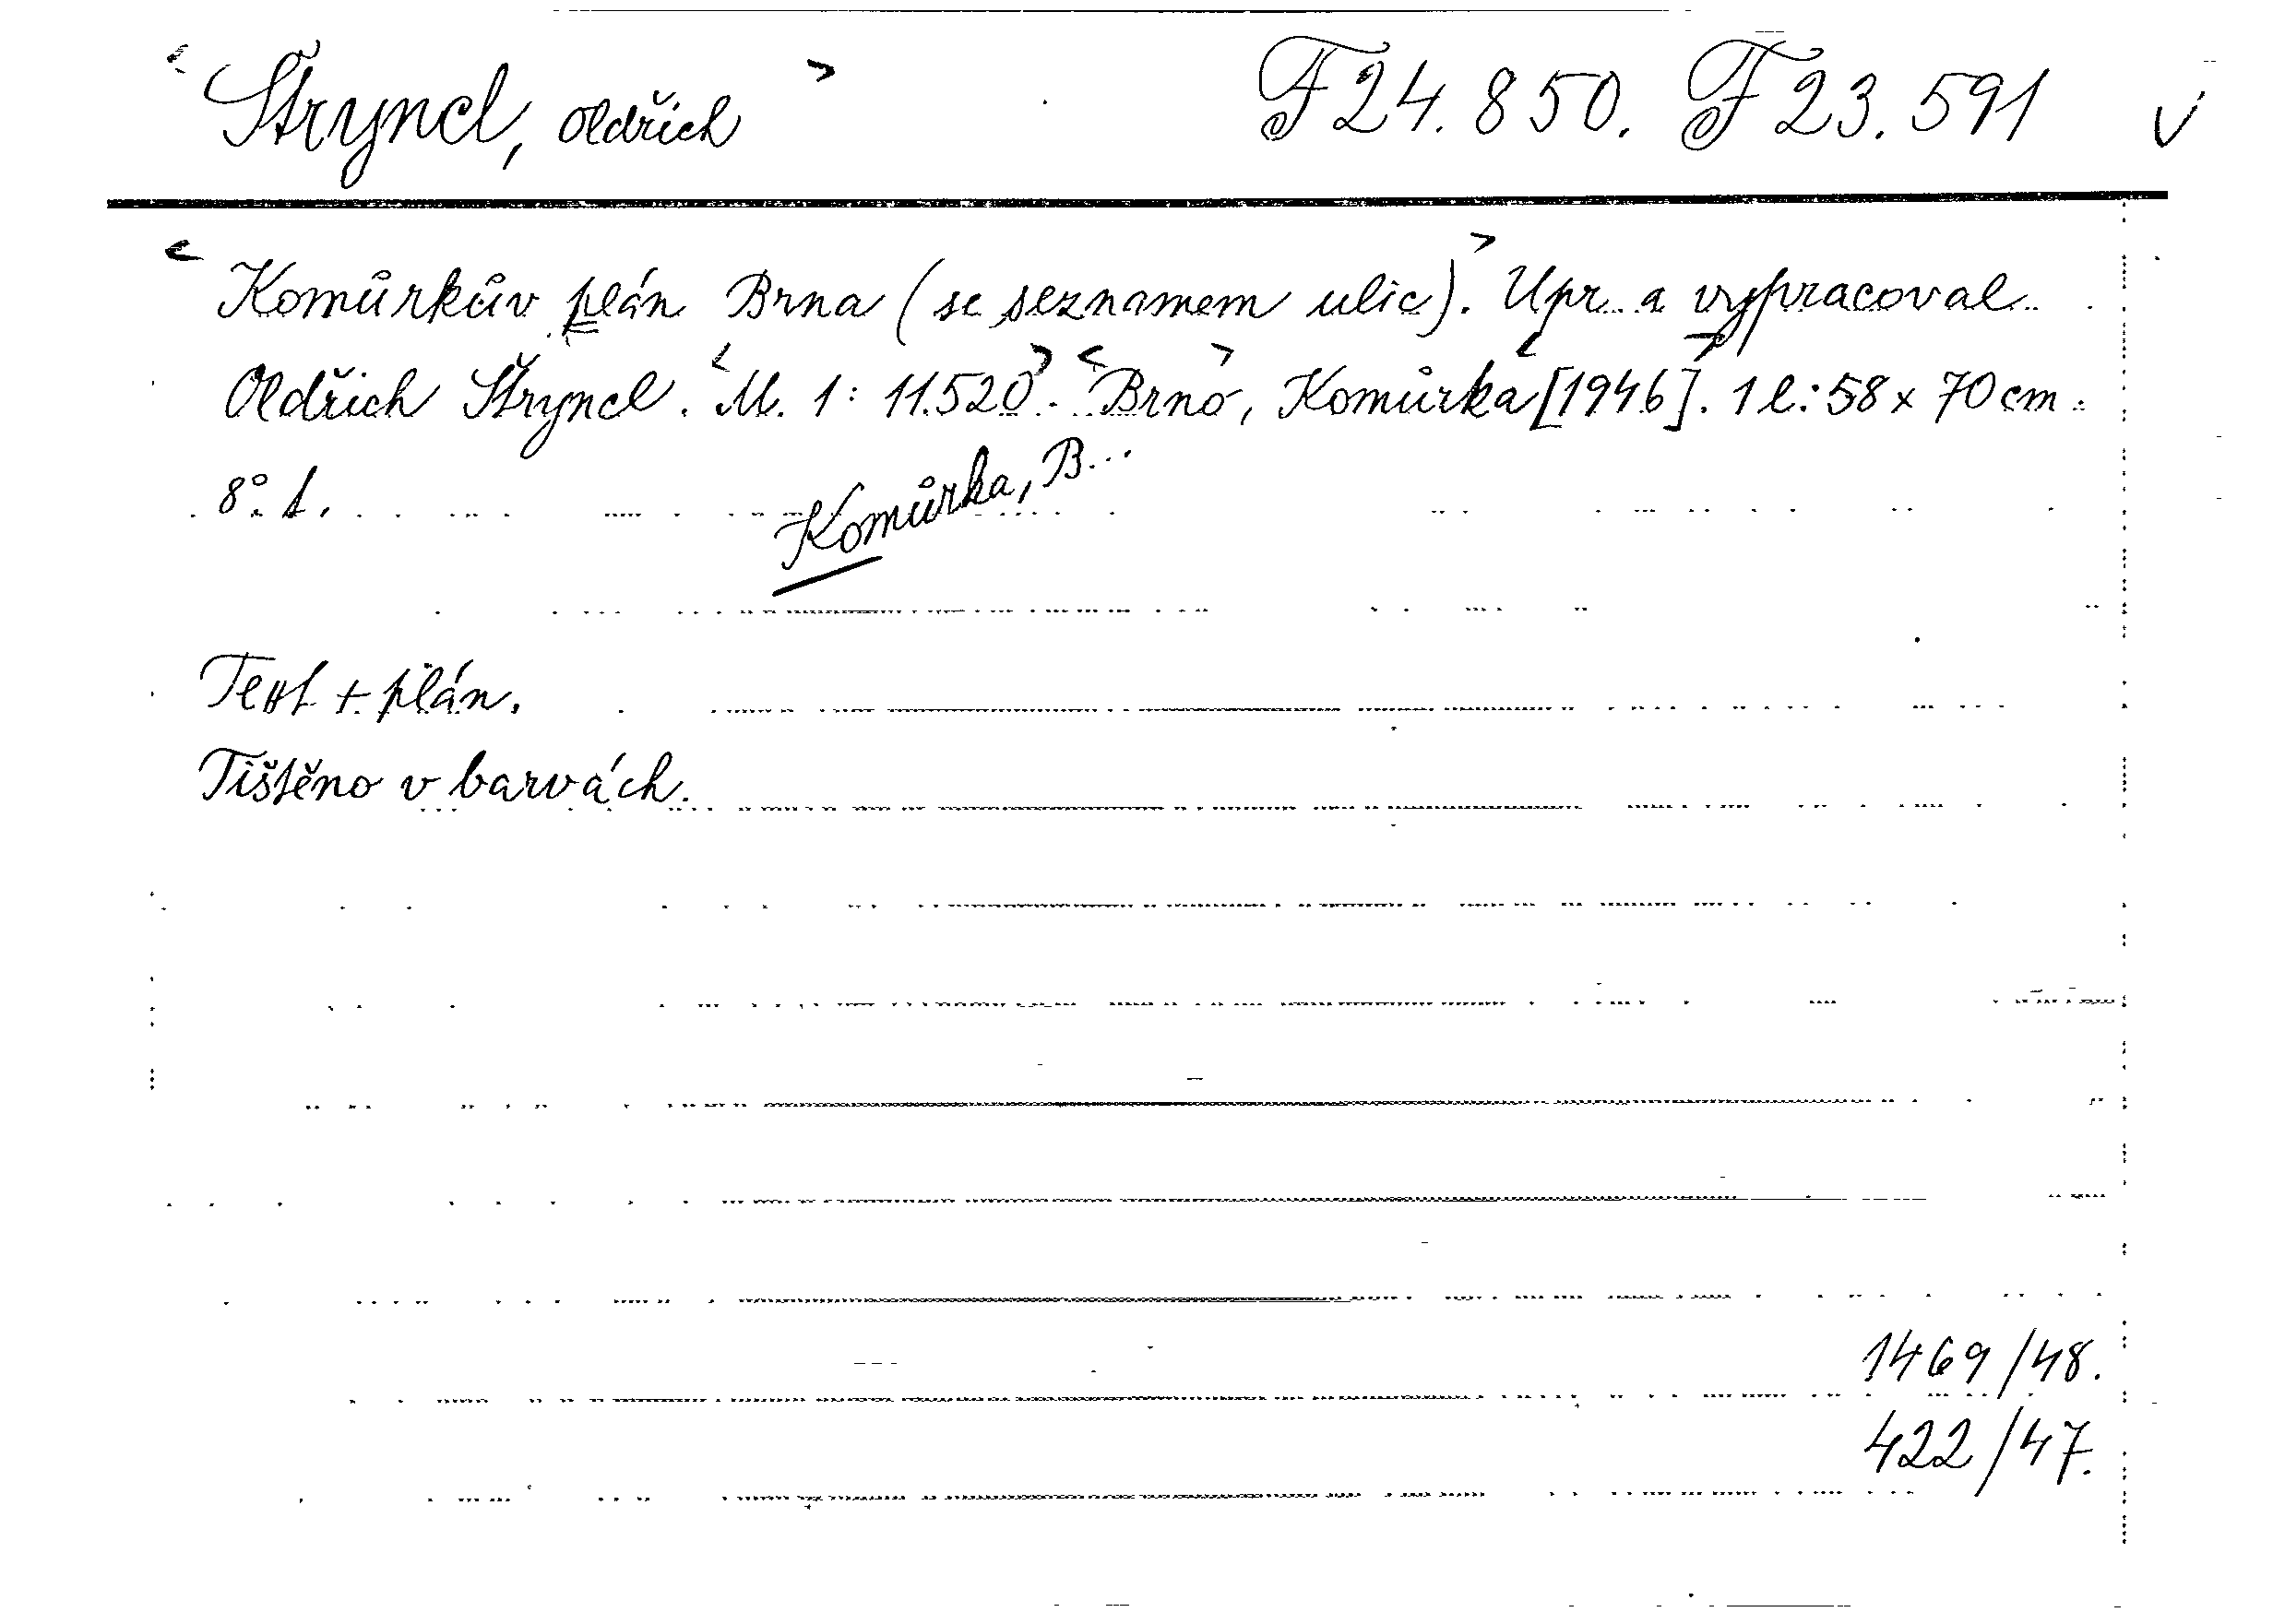 <Štryncl, Oldřich> F 24.850. F 23.591 v
<Komůrkův plán Brna (se seznamem ulic)>. Upr. a vypracoval
Oldřich Štryncl. <M. 1: 11.520>. <Brno>, Komůrka <[1946]>. 1 l.: 58 x 70 cm.
8°. t.
Komůrka, B...
Text + plán.
Tištěno v barvách.
1469/48.
422/47.